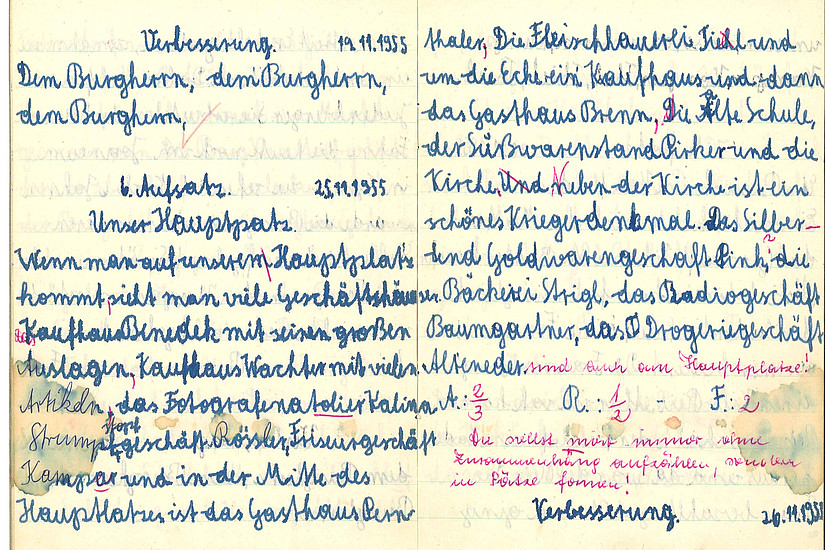 Verbesserung. 19.11.1955
Dem Burgherrn, dem Burgherrn,
dem Burgherrn,
6. Aufsatz. 25.11.1955
Unser Hauptpatz.
Wenn man auf unserem Hauptplatz
kommt, sieht man viele Geschäftshäuser.
das Kaufhaus Benedek mit seinen großen
Auslagen, Kaufhaus Wachter mit vielen
Artikeln, das Fotografenatolier Kalinin
Strumpfgeschäft Rössler, Friseurgeschäft
Kampar und in der Mitte des
Hauptlatzes ist das Gasthaus Pern-
thaler, Die Fleischhauerei Fiehl und
um die Ecke ein Kaufhaus und dann
das Gasthaus Brenn, Die Alte Schule,
der Süßwarenstand Pirker und die
Kirche, Und Neben der Kirche ist ein
schönes Kriegerdenkmal. Das Silber-
und Goldwarengeschäft Pink, die
Bäckerei Strigl, das Radiogeschäft
Baumgartner, das Drogeriegeschäft
Alteneder sind auch am Hauptplatze!
A.: 2/3 R.: 1/2 F.: 2
Du sollst nicht immer ohne
Zusammenhang aufzählen, sondern
in Sätze formen!
Verbesserung. 26.11.1955